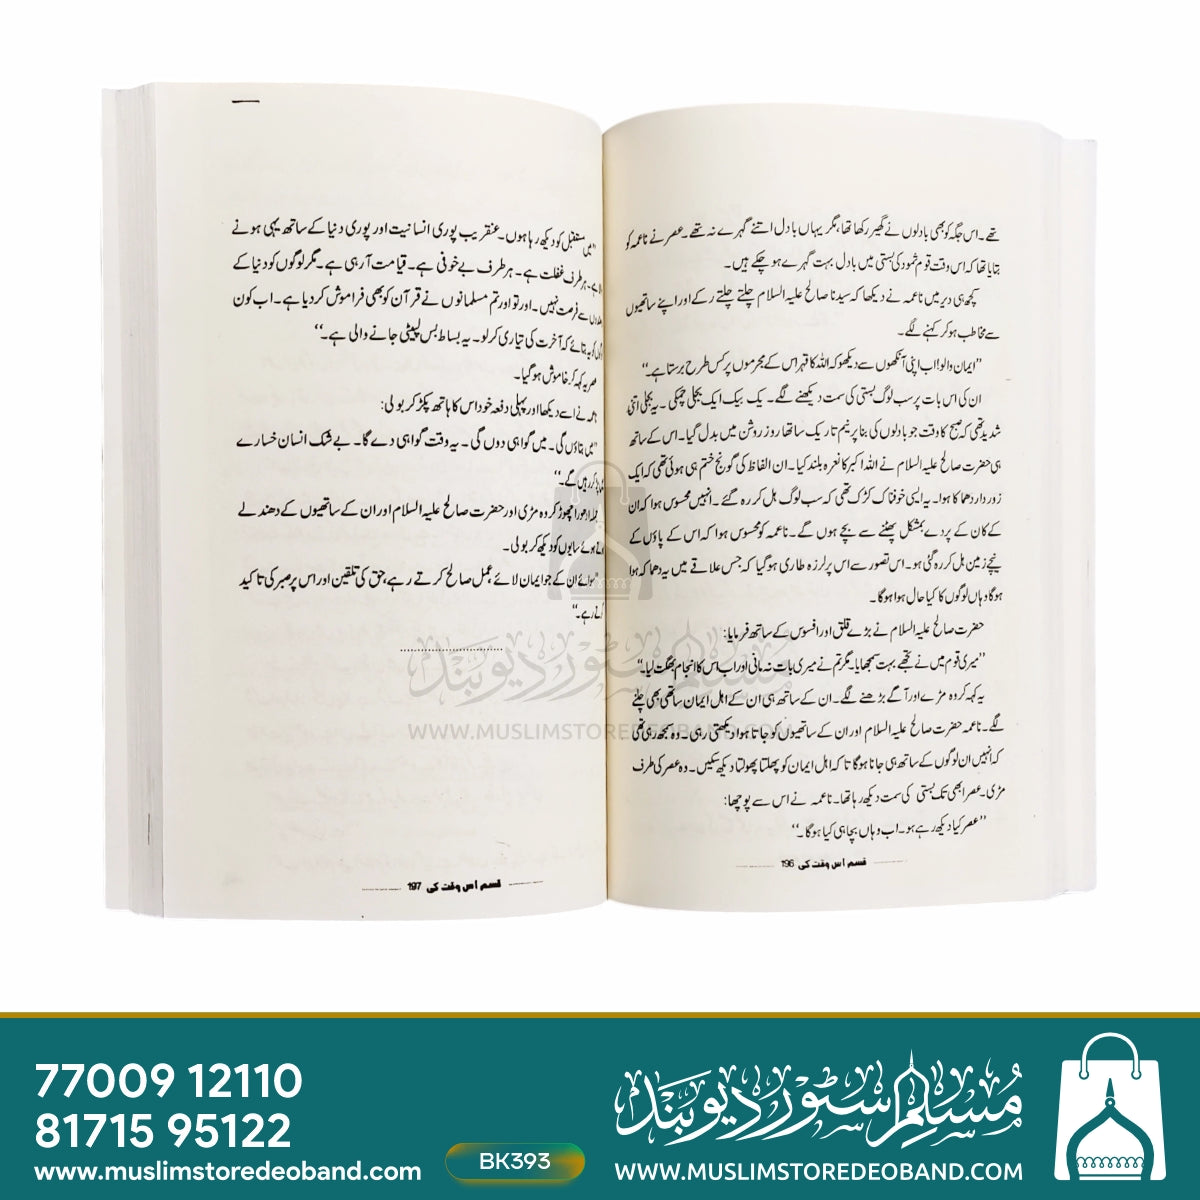 تھے۔ اس جگہ کو بھی بادلوں نے گھیر رکھا تھا، مگر یہاں بادل اتنے گہرے نہ تھے۔ عصر نے ناعمہ کو
بتایا تھا کہ اس وقت قوم ثمود کی بستی میں بادل بہت گہرے ہو چکے ہیں۔
کچھ ہی دیر میں ناعمہ نے دیکھا کہ سیدنا صالح علیہ السلام چلتے چلتے رکے اور اپنے ساتھیوں
سے مخاطب ہو کر کہنے لگے۔
’’ایمان والو! اب اپنی آنکھوں سے دیکھو کہ اللہ کا قہر اس کے مجرموں پر کس طرح برستا ہے۔‘‘
ان کی اس بات پر سب لوگ بستی کی سمت دیکھنے لگے۔ یک بیک ایک بجلی چمکی۔ یہ بجلی اتنی
شدید تھی کہ صبح کا وقت جو بادلوں کی بنا پر نیم تاریک سا تھا روز روشن میں بدل گیا۔ اس کے ساتھ
ہی حضرت صالح علیہ السلام نے اللہ اکبر کا نعرہ بلند کیا۔ ان الفاظ کی گونج ختم ہی ہوئی تھی کہ ایک
زوردار دھماکا ہوا۔ یہ ایسی خوفناک کڑک تھی کہ سب لوگ ہل کر رہ گئے۔ انہیں محسوس ہوا کہ ان
کے کان کے پردے بمشکل پھٹنے سے بچے ہوں گے۔ ناعمہ کو محسوس ہوا کہ اس کے پاؤں کے
نیچے زمین ہل کر رہ گئی ہو۔ اس تصور سے اس پر لرزہ طاری ہو گیا کہ جس علاقے میں یہ دھماکہ ہوا
ہوگا وہاں لوگوں کا کیا حال ہوا ہوگا۔
حضرت صالح علیہ السلام نے بڑے قلق اور افسوس کے ساتھ فرمایا:
’’میری قوم میں نے تجھے بہت سمجھایا۔ مگر تم نے میری بات نہ مانی اور اب اس کا انجام بھگت لیا۔‘‘
یہ کہہ کر وہ مڑے اور آگے بڑھنے لگے۔ ان کے ساتھ ہی ان کے اہل ایمان ساتھی بھی چلنے
لگے۔ ناعمہ حضرت صالح علیہ السلام اور ان کے ساتھیوں کو جاتا ہوا دیکھتی رہی۔ وہ سمجھ رہی تھی
کہ انہیں ان لوگوں کے ساتھ ہی جانا ہوگا تاکہ اہل ایمان کو پھلتا پھولتا دیکھ سکیں۔ وہ عصر کی طرف
مڑی۔ عصر ابھی تک بستی کی سمت دیکھ رہا تھا۔ ناعمہ نے اس سے پوچھا:
’’عصر کیا دیکھ رہے ہو۔ اب وہاں بچا ہی کیا ہوگا۔‘‘
قسم اس وقت کی 196
’’میں مستقبل کو دیکھ رہا ہوں۔ عنقریب پوری انسانیت اور پوری دنیا کے ساتھ یہی ہونے
ہے۔ ہر طرف غفلت ہے۔ ہر طرف بے خوفی ہے۔ قیامت آرہی ہے۔ مگر لوگوں کو دنیا کے
سے فرصت نہیں۔ اور تو اور تم مسلمانوں نے قرآن کو بھی فراموش کر دیا ہے۔ اب کون
کو یہ بتائے کہ آخرت کی تیاری کر لو۔ یہ بساط بس لپیٹی جانے والی ہے۔‘‘
عصر یہ کہہ کر خاموش ہو گیا۔
نے اسے دیکھا اور پہلی دفعہ خود اس کا ہاتھ پکڑ کر بولی:
’’میں بتاؤں گی۔ میں گواہی دوں گی۔ یہ وقت گواہی دے گا۔ بے شک انسان خسارے
کر رہیں گے۔‘‘
ادھورا چھوڑ کر وہ مڑی اور حضرت صالح علیہ السلام اور ان کے ساتھیوں کے دھندلے
ہوئے سایوں کو دیکھ کر بولی۔
’’سوائے ان کے جو ایمان لائے، عمل صالح کرتے رہے، حق کی تلقین اور اس پر صبر کی تاکید
کرتے رہے۔‘‘
قسم اس وقت کی 197
مسلم سٹور دیوبند
WWW.MUSLIMSTOREDEOBAND.COM
77009 12110
81715 95122
www.muslimstoredeoband.com
BK393
مسلم سٹور دیوبند
WWW.MUSLIMSTOREDEOBAND.COM